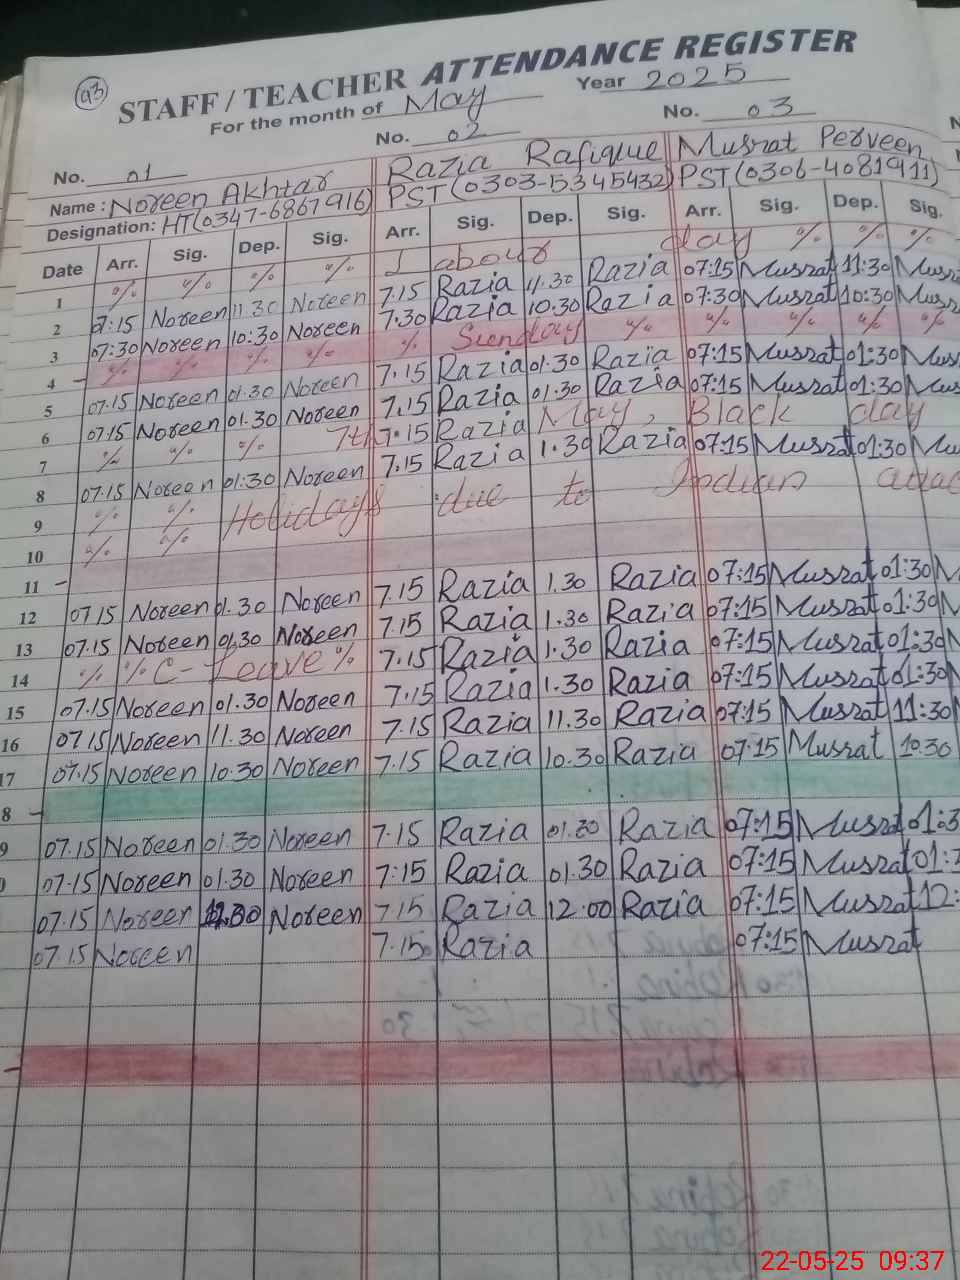 93
STAFF / TEACHER ATTENDANCE REGISTER
For the month of May Year 2025
No. 01 No. 02 No. 03
Name : Noreen Akhtar Razia Rafique Musrat Perveen
Designation: HT(0347-6867916) PST(0303-5345432) PST(0306-4081911)
Date Arr. Sig. Dep. Sig. Arr. Sig. Dep. Sig. Arr. Sig. Dep. Sig.
1 % % % % 1 labour day % % %
2 07:15 Noreen 11.30 Noreen 7.15 Razia 11.30 Razia 07:15 Musrat 11:30
3 07:30 Noreen 10:30 Noreen 7.30 Razia 10.30 Razia 07:30 Musrat 10:30
4 % % % % % Sunday % % % % %
5 07.15 Noreen 01.30 Noreen 7.15 Razia 01.30 Razia 07:15 Musrat 01:30
6 07.15 Noreen 01.30 Noreen 7.15 Razia 01.30 Razia 07:15 Musrat 01:30
7 % % % 7th 7.15 Razia May, Black day
8 07.15 Noreen 01:30 Noreen 7.15 Razia 1.30 Razia 07:15 Musrat 01:30
9 % % Holidays due to Indian
10 % %
11
12 07.15 Noreen 01.30 Noreen 7.15 Razia 1.30 Razia 07:15 Musrat 01:30
13 07.15 Noreen 01.30 Noreen 7.15 Razia 1.30 Razia 07:15 Musrat 01:30
14 % % C- Leave % 7.15 Razia 1.30 Razia 07:15 Musrat 01:30
15 07.15 Noreen 01.30 Noreen 7.15 Razia 1.30 Razia 07:15 Musrat 01:30
16 07.15 Noreen 11.30 Noreen 7.15 Razia 11.30 Razia 07:15 Musrat 11:30
17 07.15 Noreen 10.30 Noreen 7.15 Razia 10.30 Razia 07:15 Musrat 10.30
8
9 07.15 Noreen 01.30 Noreen 7.15 Razia 01.30 Razia 07:15 Musrat 01:3
07.15 Noreen 01.30 Noreen 7:15 Razia 01.30 Razia 07:15 Musrat 01:
07.15 Noreen Noreen 7.15 Razia 12.00 Razia 07:15 Musrat 12:
07.15 Noreen 7.15 Razia 07:15 Musrat
22-05-25 09:37